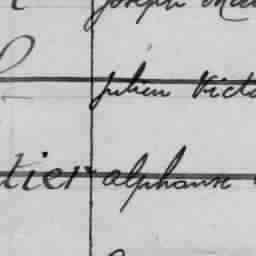 Joseph
Julien Victo
tier alphonse